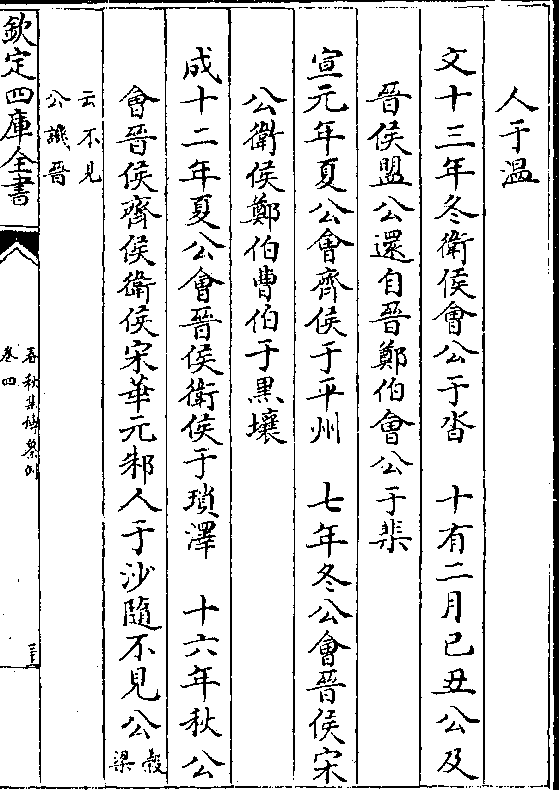 人于温
文十三年冬衛侯會公于沓　十有二月己丑公及
晉侯盟公還自晉鄭伯會公于棐
宣元年夏公會齊侯于平州　七年冬公會晉侯宋
公衛侯鄭伯曹伯于黒壤
成十二年夏公會晉侯衛侯于瑣澤　十六年秋公
會晉侯齊侯衛侯宋華元邾人于沙隨不見公穀梁
云不見公譏晉
欽定四庫全書
春秋集傳纂例
卷四